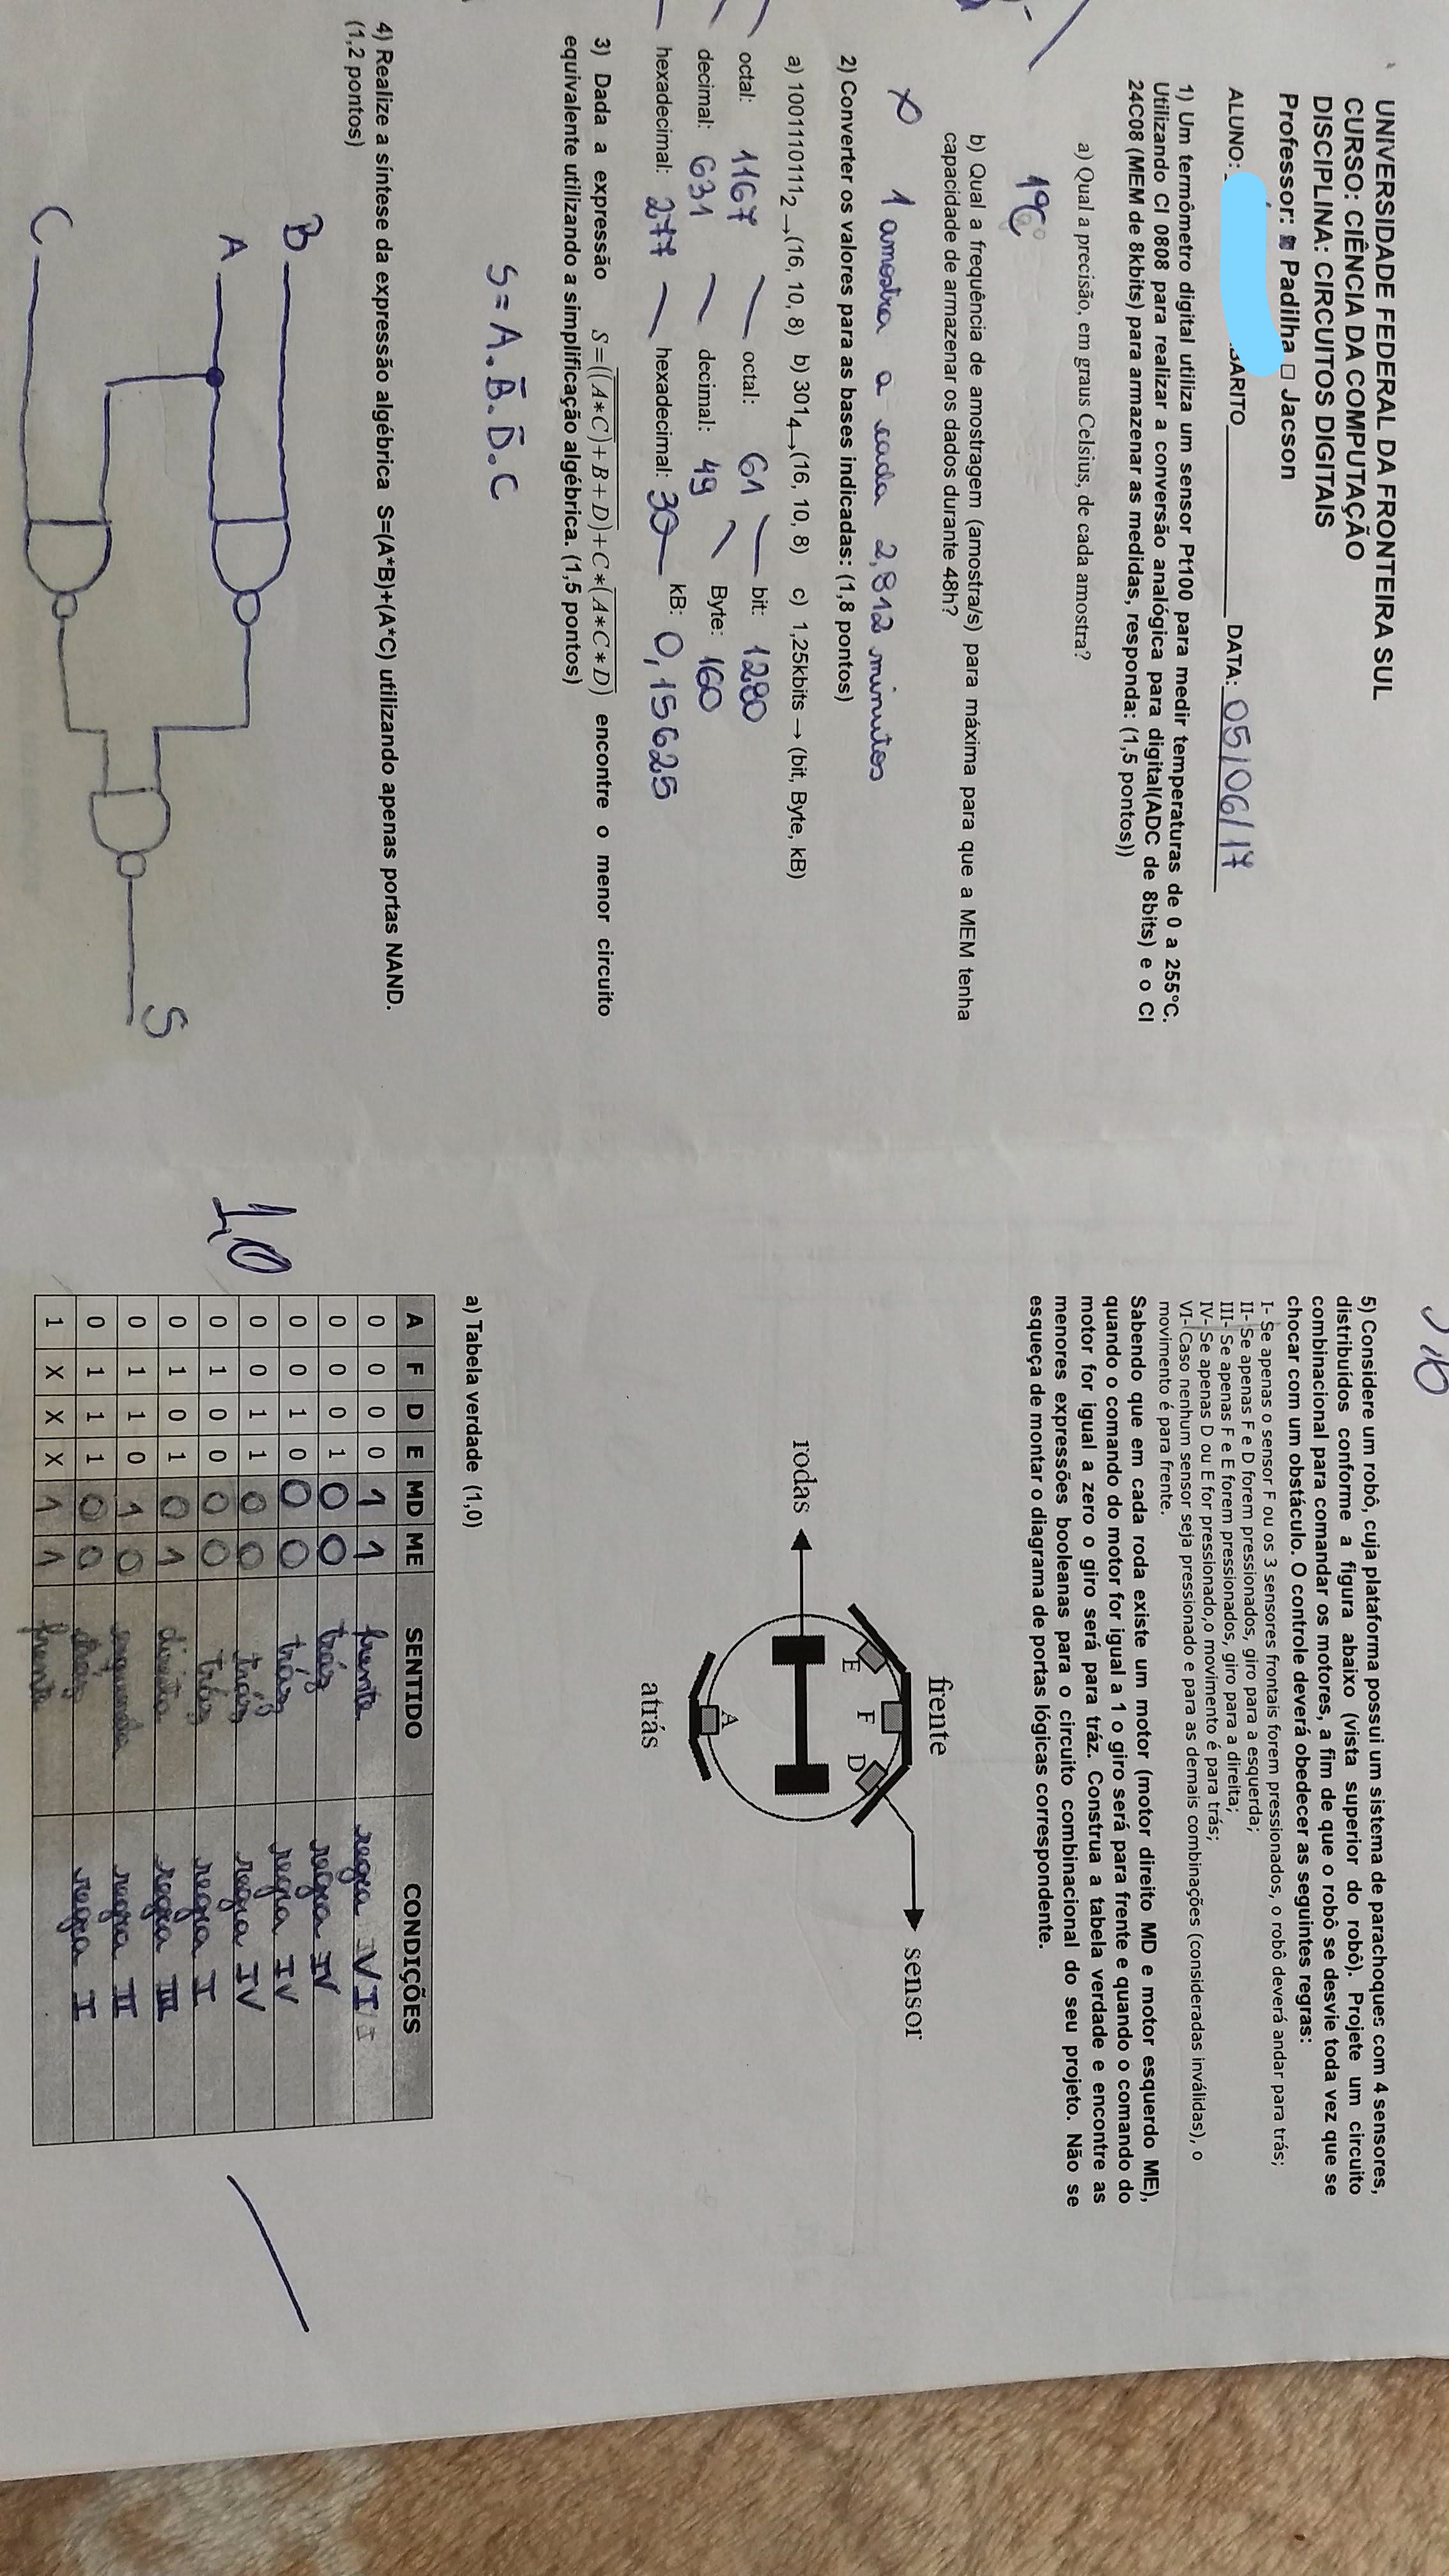 UNIVERSIDADE FEDERAL DA FRONTEIRA SUL
CURSO: CIÊNCIA DA COMPUTAÇÃO
DISCIPLINA: CIRCUITOS DIGITAIS
Professor: Padilha □ Jacson
ALUNO: BARITO DATA: 05/06/17
1) Um termômetro digital utiliza um sensor Pt100 para medir temperaturas de 0 a 255°C.
Utilizando CI 0808 para realizar a conversão analógica para digital(ADC de 8bits) e o CI
24C08 (MEM de 8kbits) para armazenar as medidas, responda: (1,5 pontos))
a) Qual a precisão, em graus Celsius, de cada amostra?
1°C
b) Qual a frequência de amostragem (amostra/s) para máxima para que a MEM tenha
capacidade de armazenar os dados durante 48h?
1 amostra a cada 2,812 minutos
2) Converter os valores para as bases indicadas: (1,8 pontos)
a) 1001110111₂→(16, 10, 8) b) 301₄→(16, 10, 8) c) 1,25kbits → (bit, Byte, kB)
octal: 1167 octal: 61 bit: 1280
decimal: 631 decimal: 49 Byte: 160
hexadecimal: 277 hexadecimal: 30 kB: 0,15625
3) Dada a expressão S=(\overline{\overline{(A*C)+B+D})+C*(\overline{A*C*D}) encontre o menor circuito
equivalente utilizando a simplificação algébrica. (1,5 pontos)
S = A.B̄.D̄.C
4) Realize a síntese da expressão algébrica S=(A*B)+(A*C) utilizando apenas portas NAND.
(1,2 pontos)
B
A
C
S
5) Considere um robô, cuja plataforma possui um sistema de parachoques com 4 sensores,
distribuídos conforme a figura abaixo (vista superior do robô). Projete um circuito
combinacional para comandar os motores, a fim de que o robô se desvie toda vez que se
chocar com um obstáculo. O controle deverá obedecer as seguintes regras:
I- Se apenas o sensor F ou os 3 sensores frontais forem pressionados, o robô deverá andar para trás;
II- Se apenas F e D forem pressionados, giro para a esquerda;
III- Se apenas F e E forem pressionados, giro para a direita;
IV- Se apenas D ou E for pressionado,o movimento é para trás;
VI- Caso nenhum sensor seja pressionado e para as demais combinações (consideradas inválidas), o
movimento é para frente.
Sabendo que em cada roda existe um motor (motor direito MD e motor esquerdo ME),
quando o comando do motor for igual a 1 o giro será para frente e quando o comando do
motor for igual a zero o giro será para tráz. Construa a tabela verdade e encontre as
menores expressões booleanas para o circuito combinacional do seu projeto. Não se
esqueça de montar o diagrama de portas lógicas correspondente.
frente
E F D
sensor
rodas
A
atrás
a) Tabela verdade (1,0)
1,0
A F D E MD ME SENTIDO CONDIÇÕES
0 0 0 0 1 1 frente regra VI
0 0 0 1 0 0 trás regra IV
0 0 1 0 0 0 trás regra IV
0 0 1 1 0 0 trás regra IV
0 1 0 0 0 0 trás regra I
0 1 0 1 0 1 direita regra III
0 1 1 0 1 0 esquerda regra II
0 1 1 1 0 0 atrás regra I
1 X X X 1 1 frente